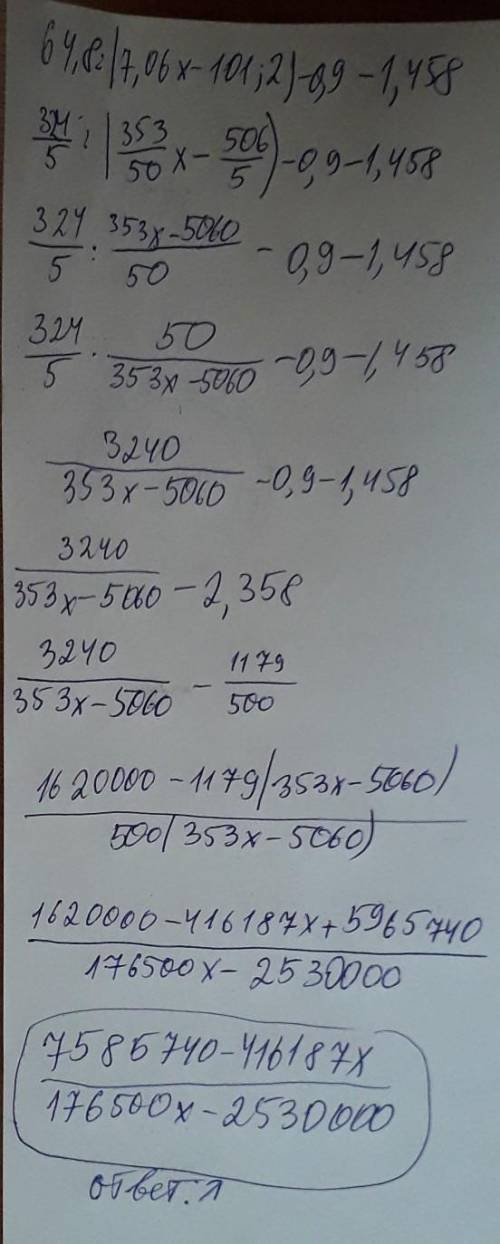 64,8:(7,06x-101;2)-0,9-1,458
324/5 : (353/50 x - 506/5) -0,9-1,458
324/5 : 353x-5060/50 - 0,9-1,458
324/5 · 50/353x-5060 -0,9-1,458
3240/353x-5060 -0,9-1,458
3240/353x-5060 - 2,358
3240/353x-5060 - 1179/500
1620000-1179(353x-5060)/500(353x-5060)
1620000-416187x+5965740/176500x-2530000
7585740-416187x/176500x-2530000
ответ.